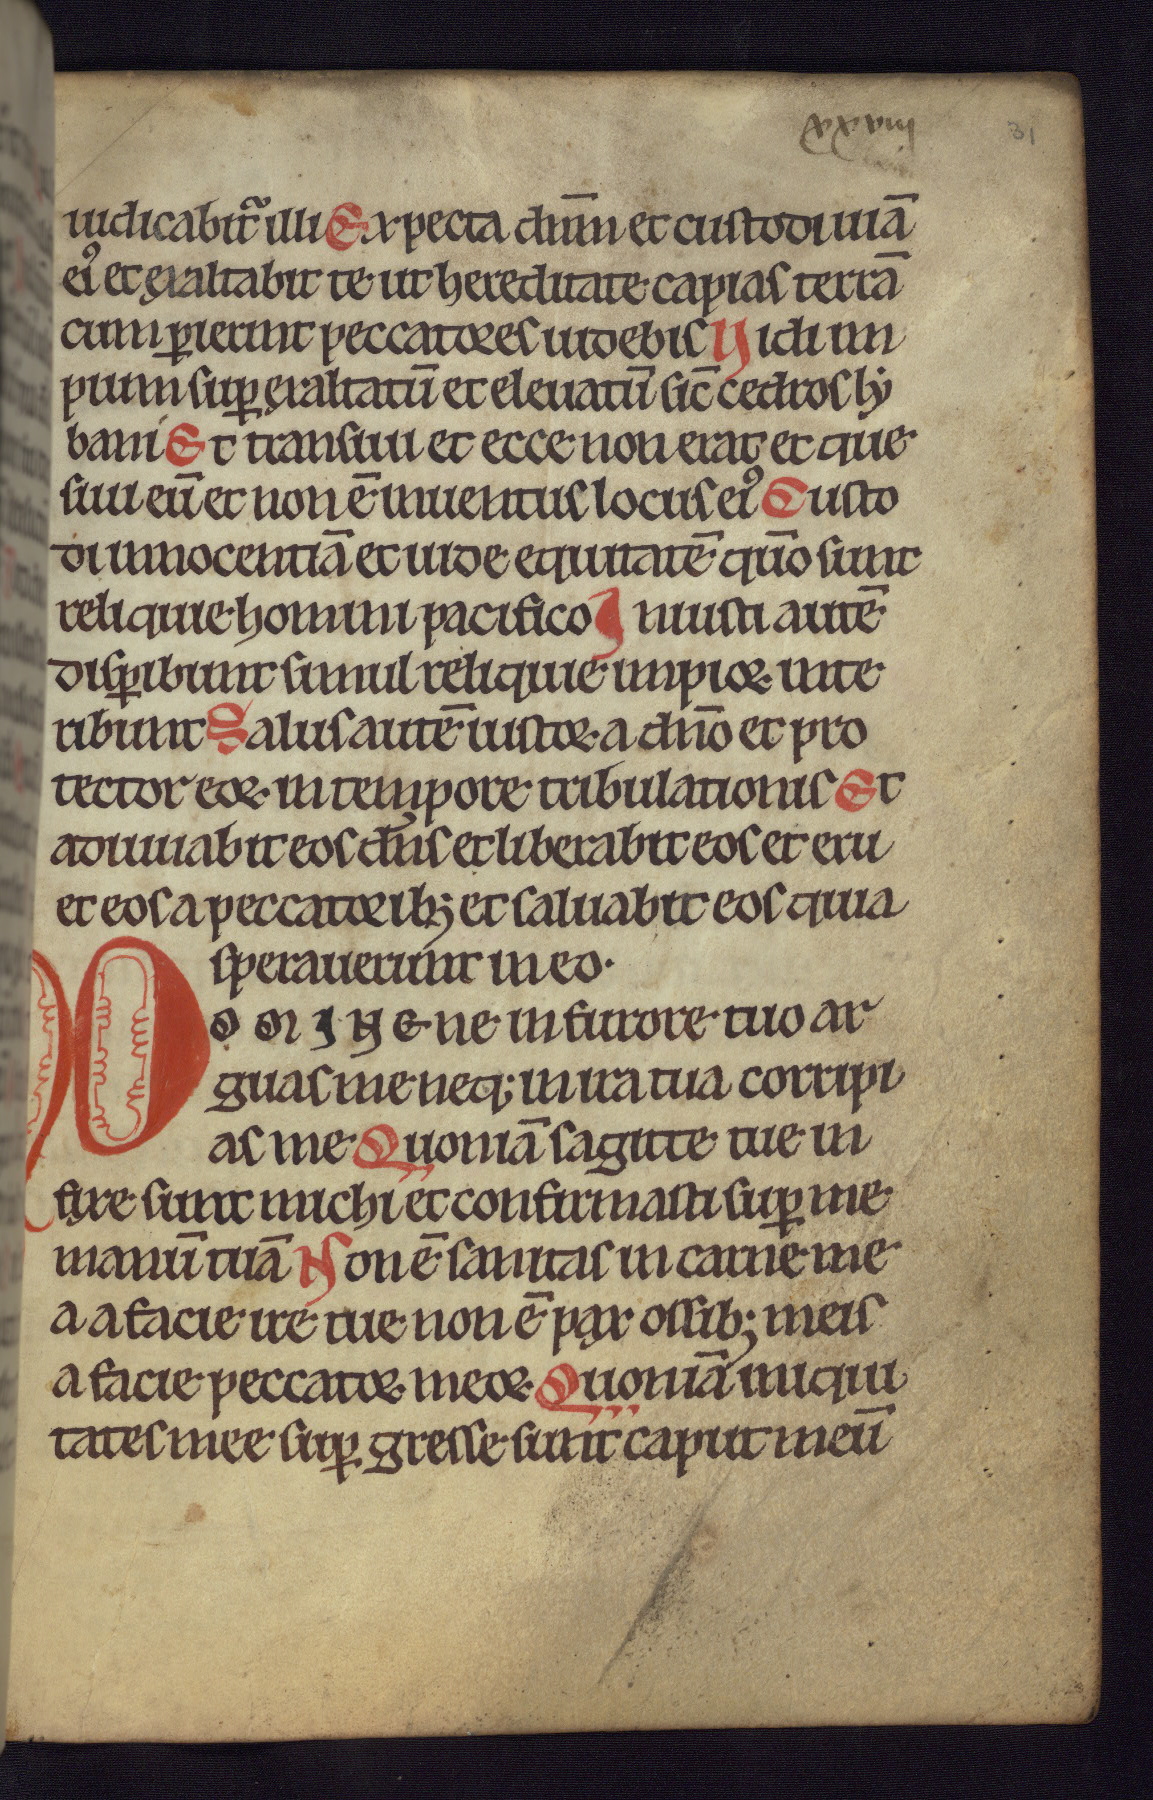 xxxviii 31
iudicabit᷑ illi Expecta dn̄m et custodi uiā
ei᷒ et exaltabit te ut hereditate capias terrā
cum ꝑierint peccatores uidebis Uidi im
pium suꝑ exaltatū et eleuatū sic̄ cedros ly
bani Et transiui et ecce non erat et que
siui eū et non ē inuentus locus ei᷒ Custo
di innocentiā et uide equitatē qm̄o sunt
reliquie homini pacifico Iniusti autē
disꝑibunt simul reliquie impioꝝ inte
ribunt Salus autē iustoꝝ a dn̄o et pro
tector eoꝝ in tempore tribulationis Et
adiuuabit eos dn̄s et liberabit eos et eru
et eos a peccatorib; et saluabit eos quia
sperauerunt in eo.
DOMINE ne in furore tuo ar
guas me neq; in ira tua corripi
as me Quoniā sagitte tue in
fixe sunt michi et confirmasti suꝑ me
manū tuā Non ē sanitas in carne me
a a facie ire tue non ē pax ossib; meis
a facie peccatoꝝ meoꝝ Quoniā iniqui
tates mee suꝑ gresse sunt caput meū